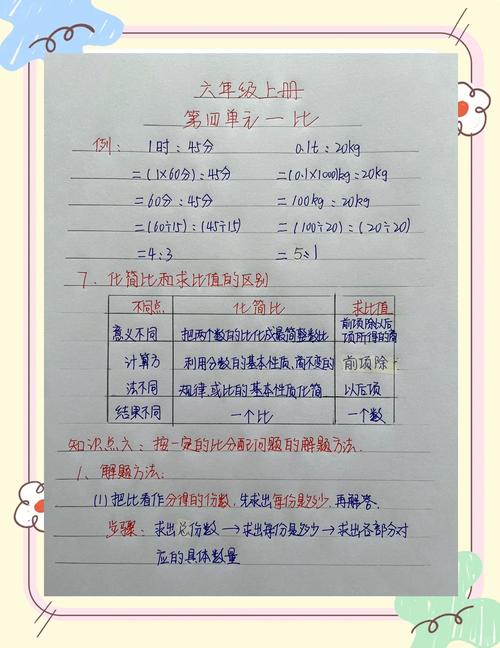 六年级上册
第四单元一比
例: 1时:45分 0.1t:20kg
=(1×60分):45分 =(0.1×1000)kg:20kg
=60分:45分 =100kg:20kg
=(60÷15):(45÷15) =(100÷20):(20÷20)
=4:3 =5:1
7、化简比和求比值的区别
不同点 化简比 求比值
意义不同 把两个数的比化成最简整数比 前项除以后项所得的商
计算方 利用分数的基本性质、商不变的 前项除
法不同 规律.或比的基本性质化简 以后项
结果不同 一个比 一个数
知识点六:按一定的比分配问题的解题方法.
1、解题方法:
(1)把比看作分得的份数,先求出每份是多少,再解答.
步骤:求出总份数→求出每份是多少→求出各部分对
应的具体数量